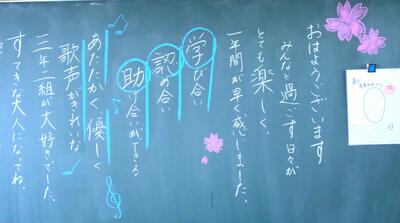 おはようございます。
みんなと過ごす日々が
とても楽しく、
一年間が早く感じました。
学び合い
認め合い
助け合いができる
あたたかく、優しく
歌声がきれいな
三年二組が大好きでした。
すてきな大人になってね。